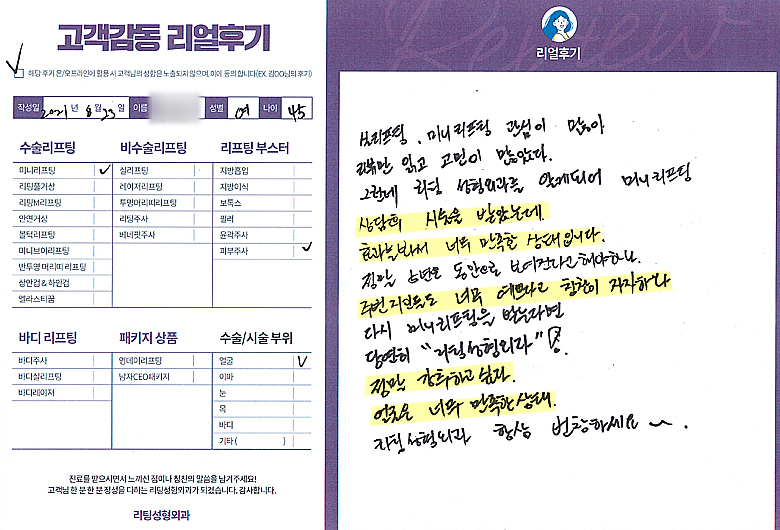 고객감동 리얼후기
해당 후기 온/오프라인에 활용 시 고객님의 성함은 노출되지 않으며, 이에 동의 합니다(EX. 김OO님의 후기)
작성일 2021 년 8 월 23 일 이름 성별 여 나이 45
수술리프팅
미니리프팅
리팅풀거상
리팅M리프팅
안면거상
몰턱리프팅
미니브이리프팅
반투명 머리띠 리프팅
상안검 & 하안검
엘라스티꿈
비수술리프팅
실리프팅
레이저리프팅
투명머리띠리프팅
리팅주사
베네핏주사
리프팅 부스터
지방흡입
지방이식
보톡스
필러
윤곽주사
피부주사
바디 리프팅
바디주사
바디실리프팅
바디레이저
패키지 상품
원데이리프팅
남자CEO패키지
수술/시술 부위
얼굴
이마
눈
목
바디
기타 ( )
진료를 받으시면서 느끼신 점이나 칭찬의 말씀을 남겨주세요!
고객님 한 분 한 분 정성을 다하는 리팅성형외과가 되겠습니다. 감사합니다.
리팅성형외과
Review
리얼후기
실리프팅, 미니리프팅 관심이 많아
리뷰만 읽고 고민이 많았었다.
그런데 리팅 성형외과를 알게되어 미니리프팅
상담후 시술을 받았는데
효과를봐서 너무 만족한 상태입니다.
정말 동안으로 보여진다고해야하나
주변지인들도 너무 예쁘다고 칭찬이 자자하다
다시 미니리프팅을 받는다면
당연히 "리팅성형외과"
정말 강추하고 싶다.
얼굴은 너무 만족한 상태.
리팅성형외과 항상 번창하세요~.